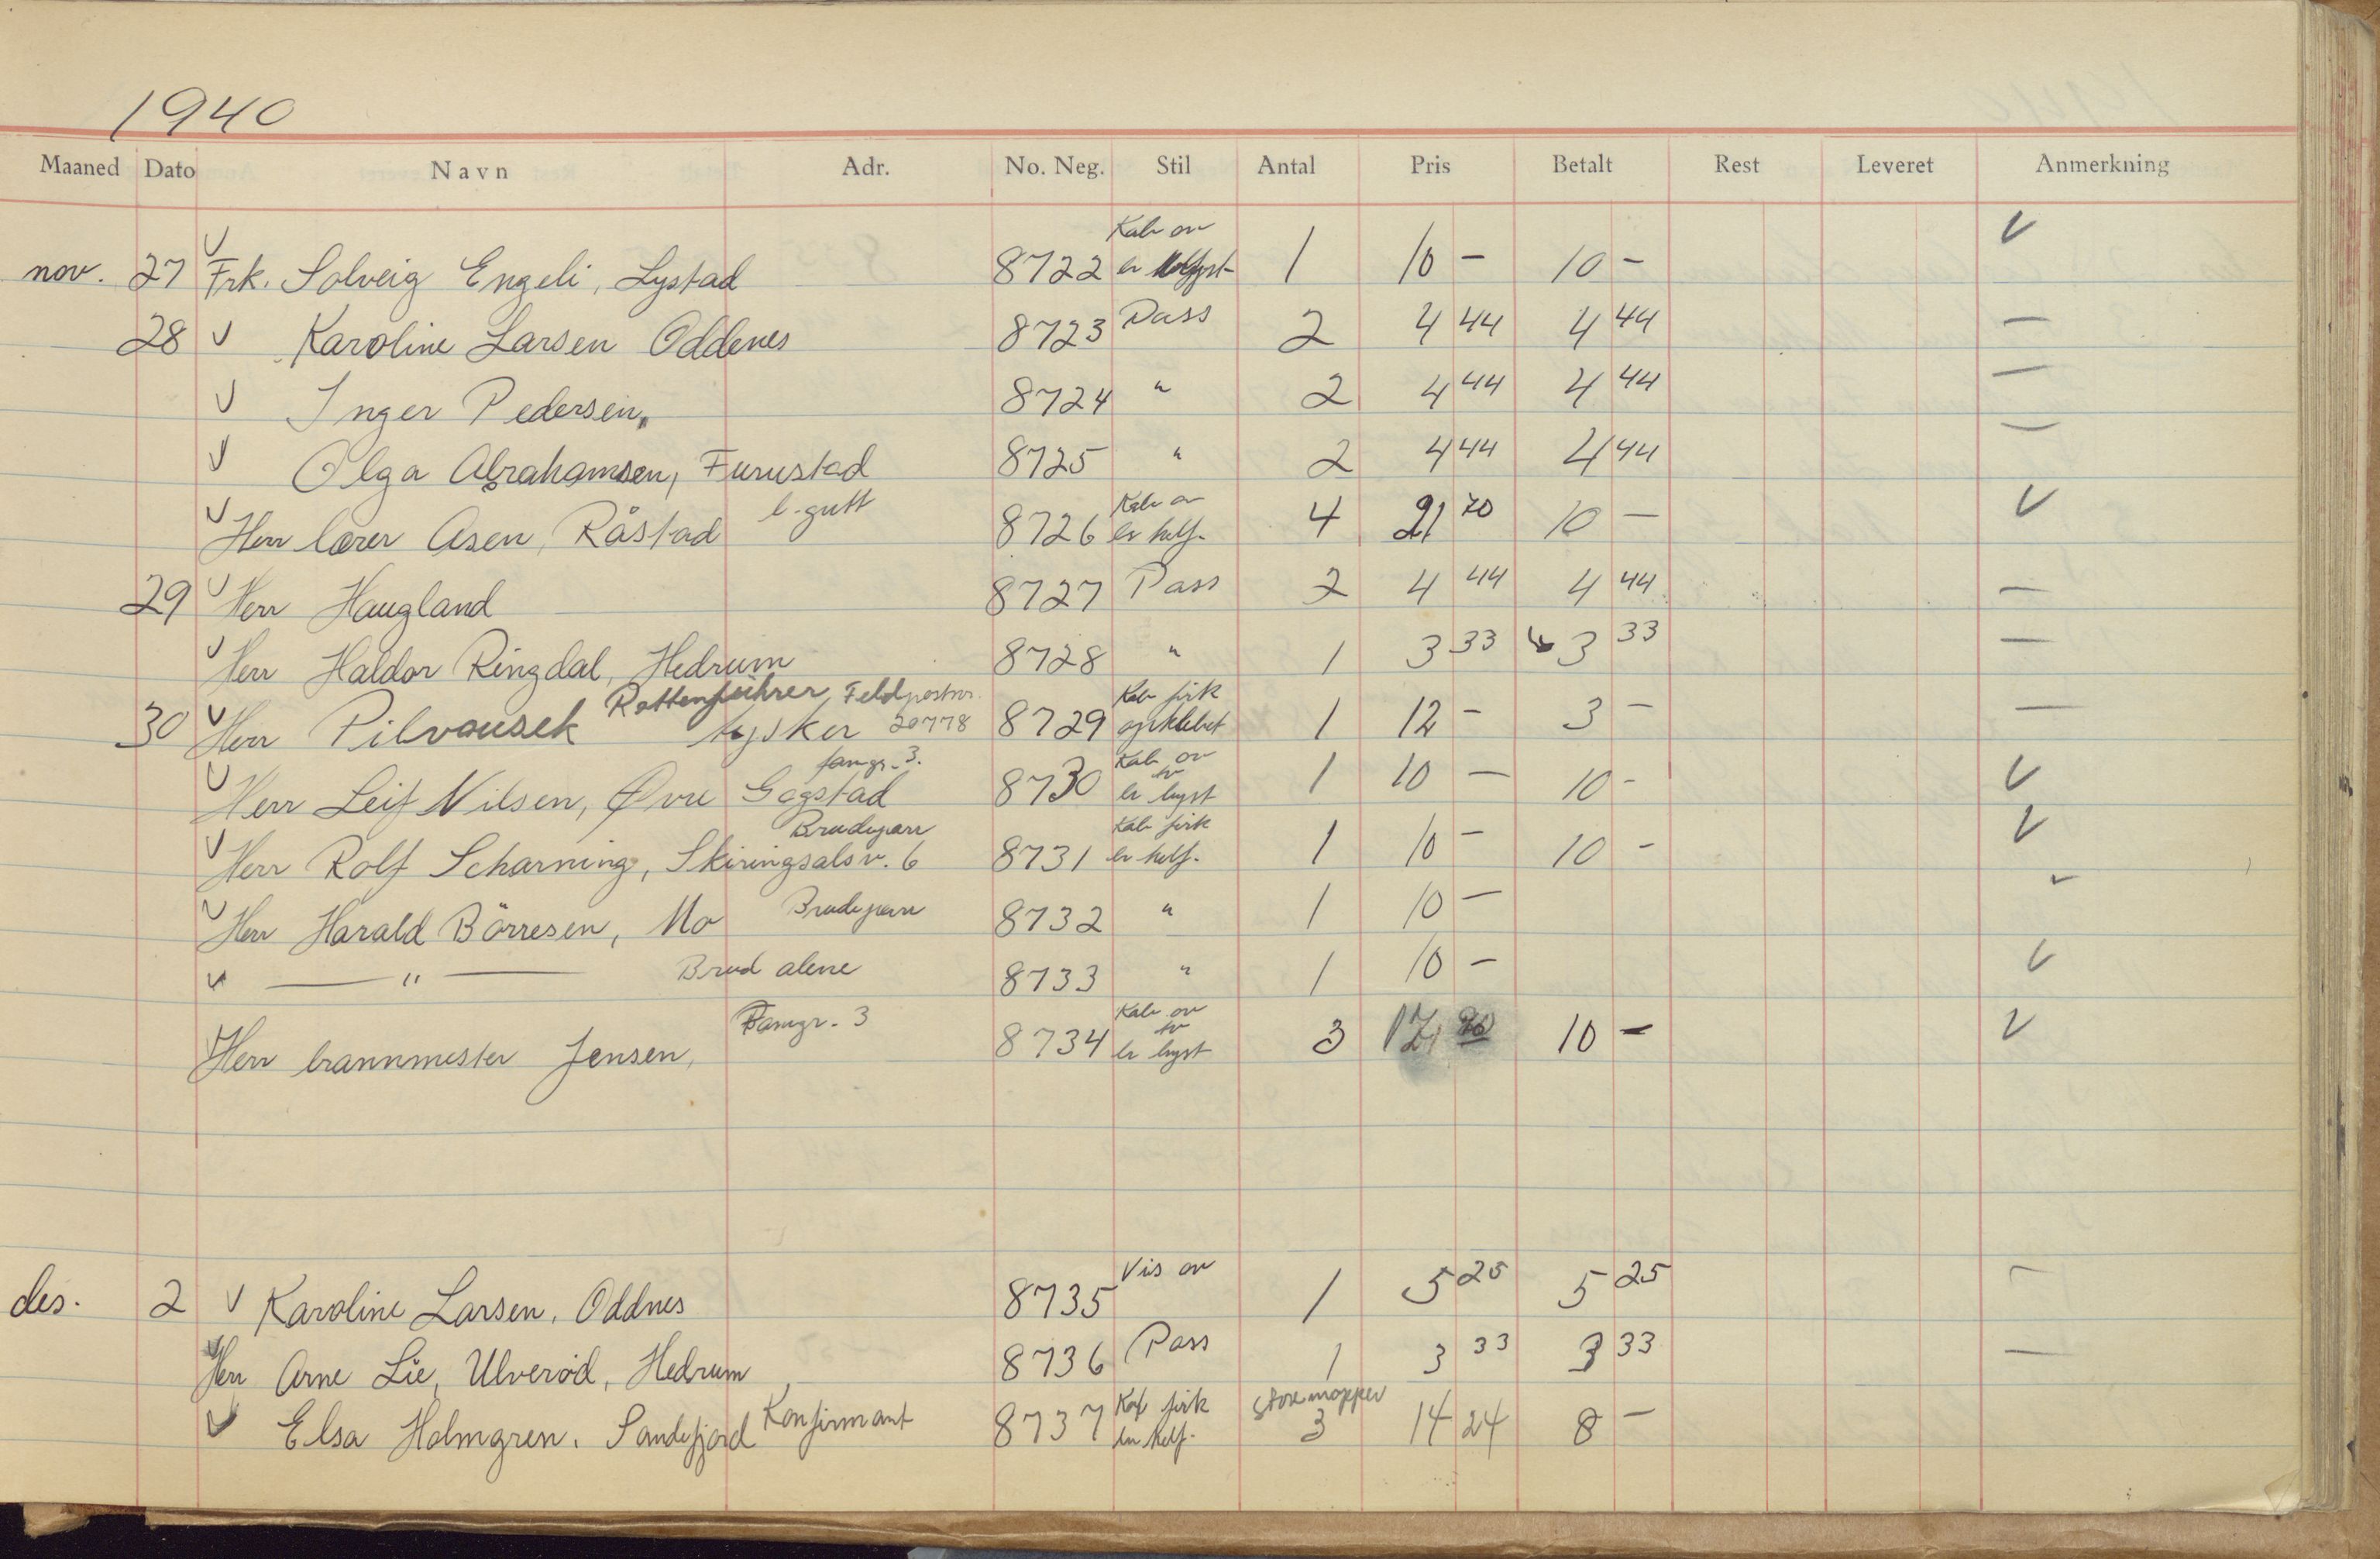 1940
Maaned Dato Navn Adr. No. Neg. Stil Antal Pris Betalt Rest Leveret Anmerkning
Kab ov
nov. 27 Frk. Solveig Engeli, Lystad 8722 1 10 - 10 -
28 Karoline Larsen Oddenes 8723 Pass 2 4 44 4 44
Inger Pedersen, 8724 " 2 4 44 4 44
Olga Abrahamsen, Furustad 8725 " 2 4 44 4 44
l. gutt Kab ov
Herr lærer Asen, Råstad 8726 er helf. 4 21 70 10 -
29 Herr Haugland 8727 Pass 2 4 44 4 44
Herr Haldor Ringdal, Hedrum 8728 " 1 3 33 3 33
Rottenführer, Feldpostnr. Kab firk
30 Herr Pilvousek tysker 20778 8729 opklebet 1 12 - 3 -
famgr. 3. Kab ov
Herr Leif Nilsen, Øvre Gogstad 8730 er lyst 1 10 - 10 -
Brudepar Kab firk
Herr Rolf Scharning, Skiringsalsv. 6 8731 er helf. 1 10 - 10 -
Herr Harald Börresen, Mo Brudepar 8732 " 1 10 -
" Brud alene 8733 " 1 10 -
Famgr. 3 Kab ov
Herr brannmester Jensen, 8734 er lyst 3 10 -
Vis ov
des. 2 Karoline Larsen, Oddnes 8735 1 5 25 5 25
Herr Arne Lie, Ulverød, Hedrum 8736 Pass 1 3 33 3 33
Konfirmant Kab firk store mapper
Elsa Holmgren. Sandefjord 8737 helf. 3 14 24 8 -